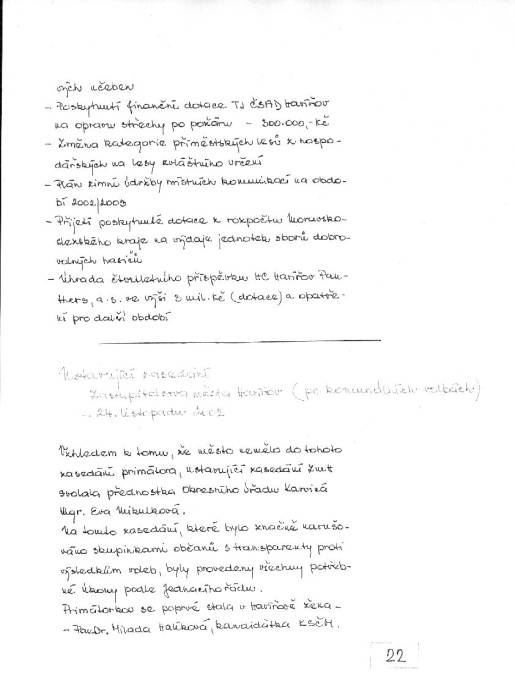 ných učeben
– Poskytnutí finanční dotace TJ ČSAD Havířov
na opravu střechy po požáru – 300.000,-Kč
– Změna kategorie příměstských lesů z hospo-
dářských na lesy zvláštního určení
– Plán zimní údržby místních komunikací na obdo-
bí 2002/2003
– Přijetí poskytnuté dotace z rozpočtu Moravsko-
slezského kraje na výdaje jednotek sborů dobro-
volných hasičů
– Úhrada čtvrtletního příspěvku HC Havířov Pan-
thers, a.s. ve výši 2 mil. Kč (dotace) a opatře-
ní pro další období
Ustavující zasedání
Zastupitelstva města Havířov (po komunálních volbách)
– 24. listopadu 2002
Vzhledem k tomu, že město nemělo do tohoto
zasedání primátora, ustavující zasedání ZMH
svolala přednostka Okresního úřadu Karviná
Mgr. Eva Mikulková.
Na tomto zasedání, které bylo značně narušo-
váno skupinkami občanů s transparenty proti
výsledkům voleb, byly provedeny všechny potřeb-
né úkony podle Jednacího řádu.
Primátorkou se poprvé stala v Havířově žena –
– PaedDr. Milada Halíková, kandidátka KSČM.
22